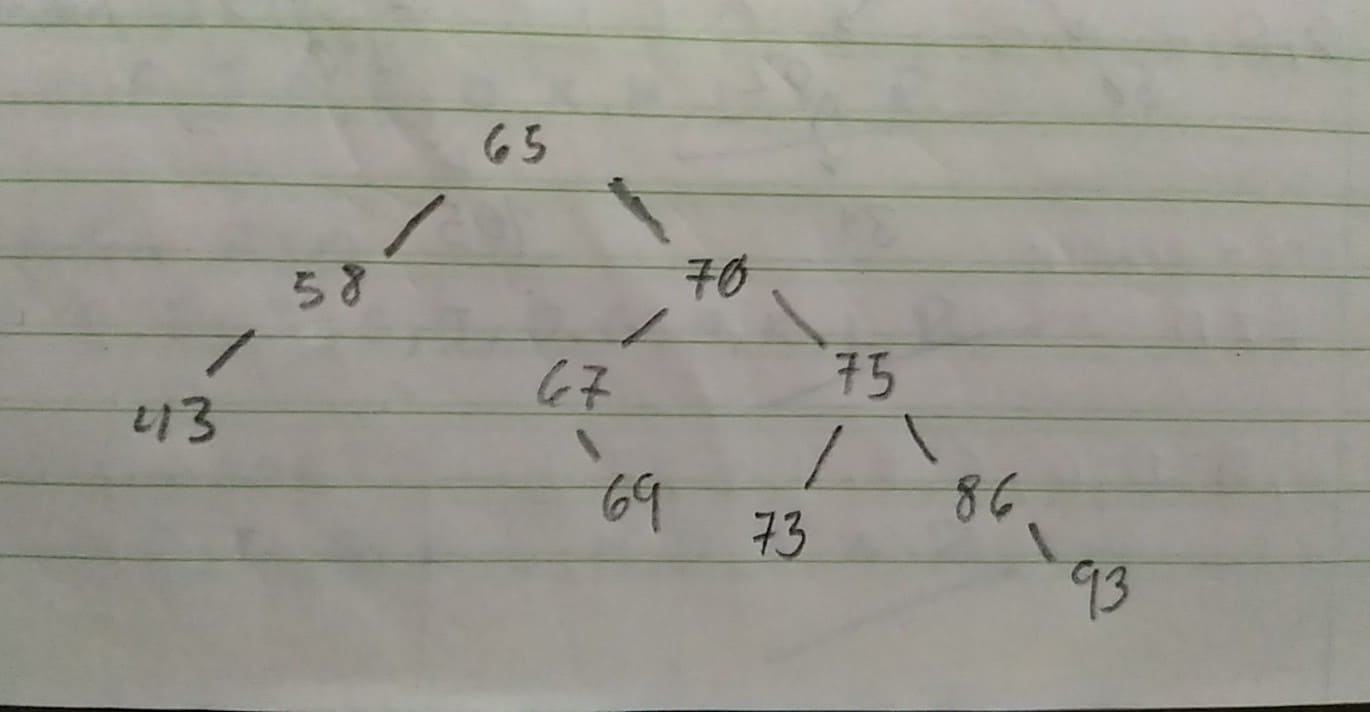 65
58 70
43 67 75
69 73 86
93